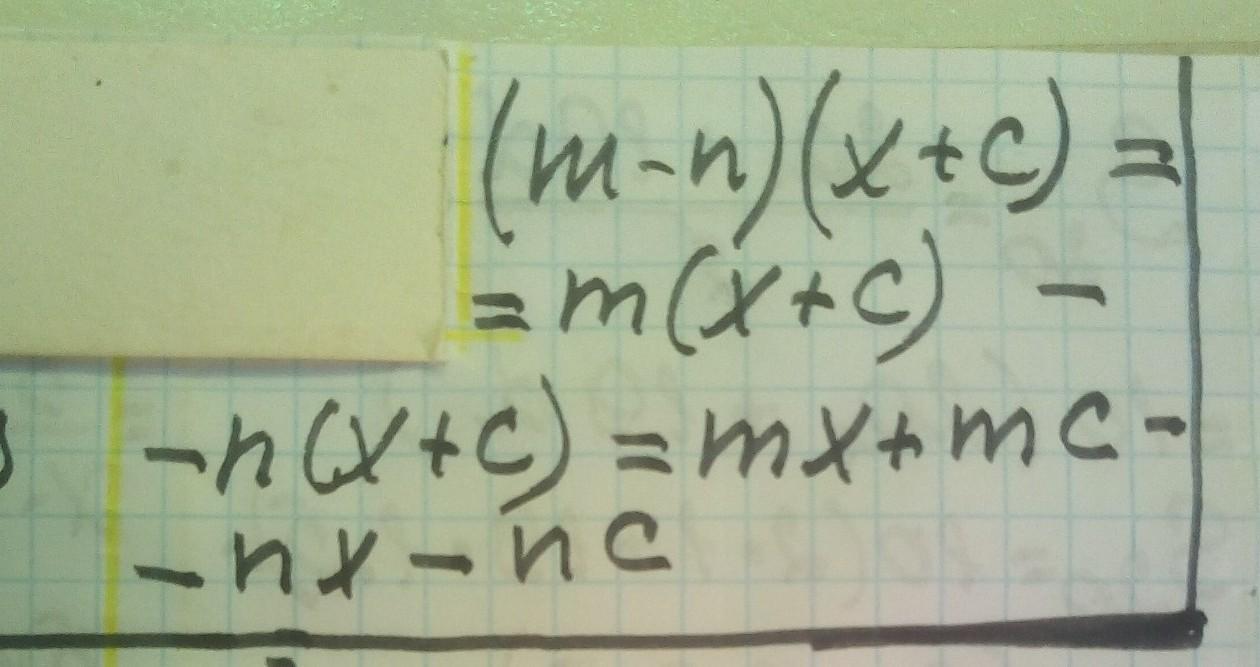 (m-n)(x+c)=
=m(x+c) -
-n(x+c)=mx+mc-
-nx-nc